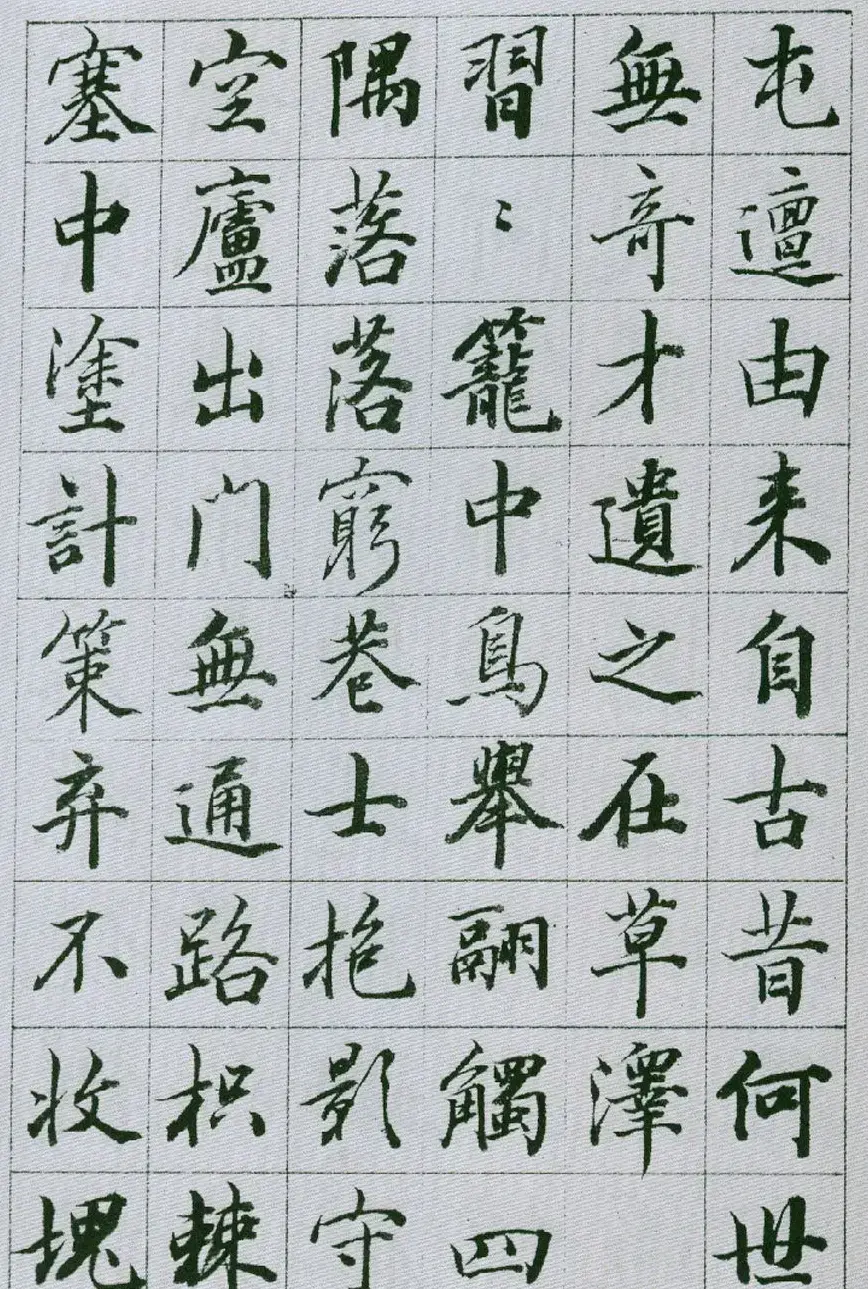 屯邅由来自古昔何世
無奇才遺之在草澤
習〻籠中鳥舉翮觸四
隅落落窮巷士抱影守
空廬出門無通路枳棘
塞中塗計策弃不收塊